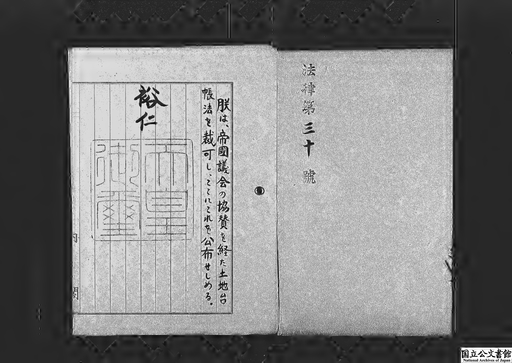 法律第三十號
朕は、帝國議会の協賛を経た土地台
帳法を裁可し、ここにこれを公布せしめる。
裕仁
天皇
御璽
内閣
国立公文書館
National Archives of Japan